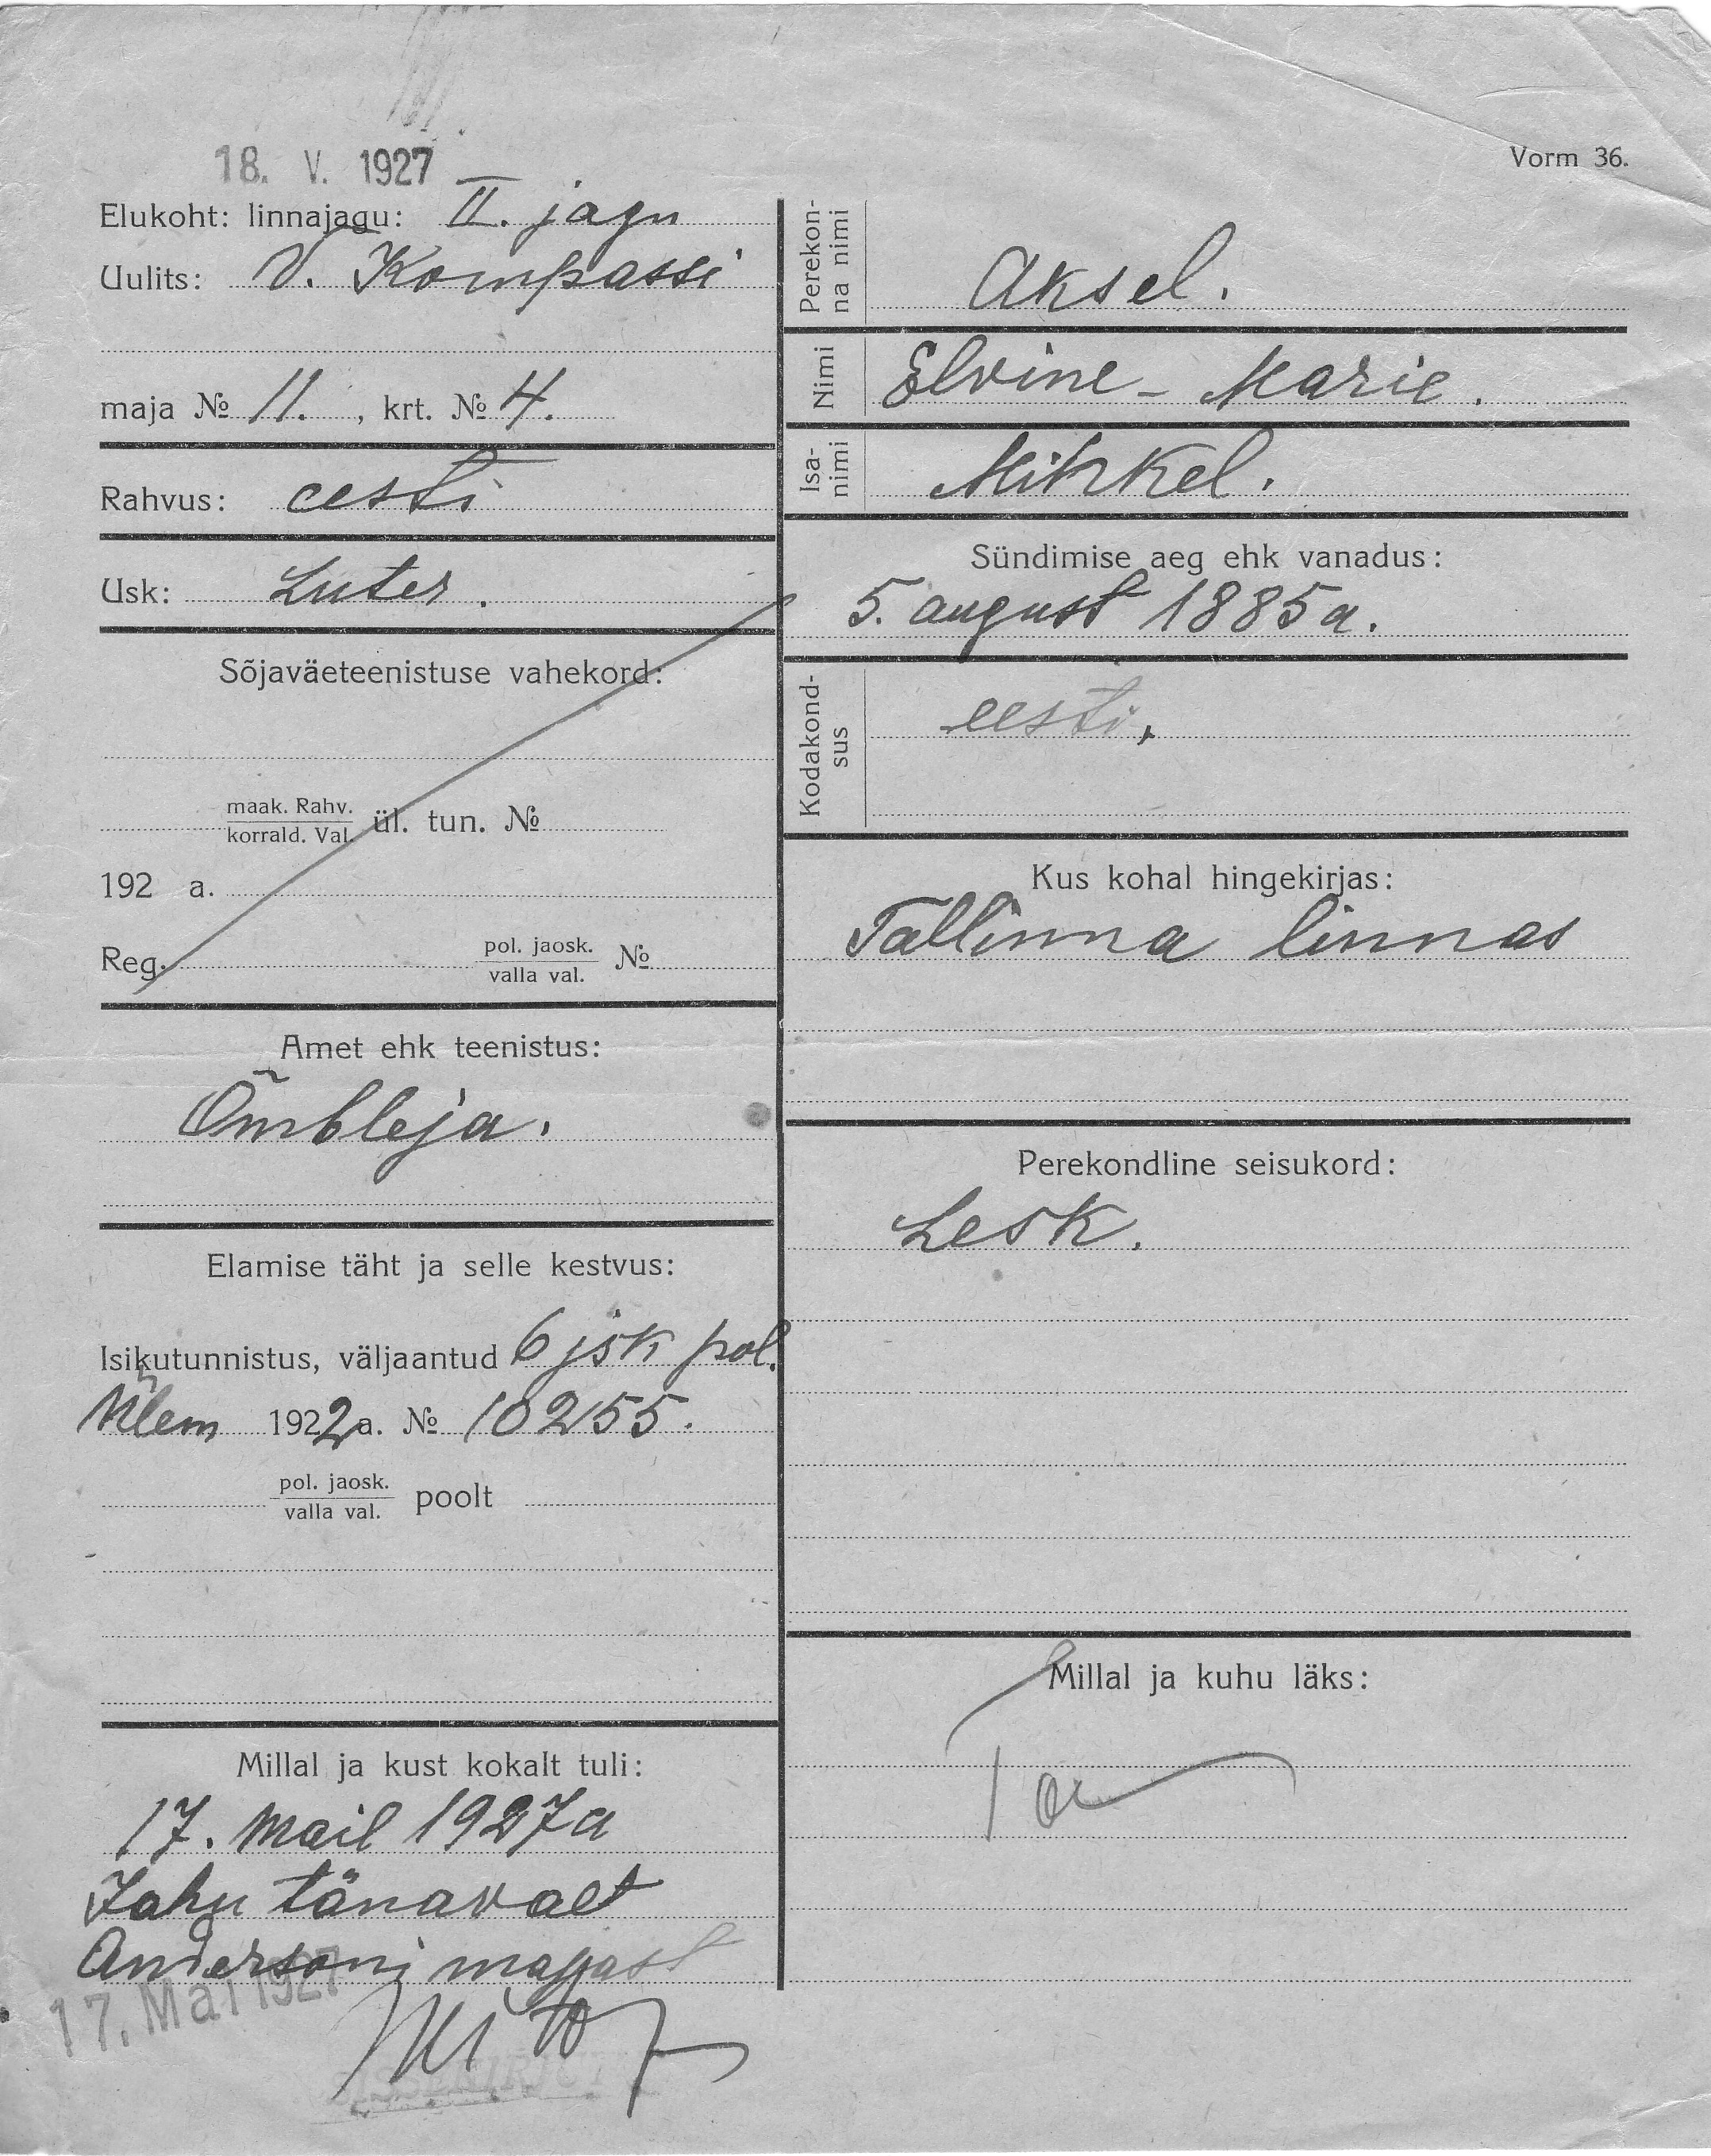 18. V. 1927
Vorm 36.
Elukoht: linnajagu: II. jagu
Uulits: V. Kompassi
maja № 11. , krt. № 4.
Rahvus: eesti
Usk: Luter.
Sõjaväeteenistuse vahekord:
maak. Rahv.
korrald. Val. ül. tun. №
192 a.
Reg. pol. jaosk.
valla val. №
Amet ehk teenistus:
Õmbleja.
Elamise täht ja selle kestvus:
Isikutunnistus, väljaantud 6 jsk pol.
1922a. № 10255.
pol. jaosk.
valla val. poolt
Millal ja kust kokalt tuli:
17. Mail 1927a
Jahu tänavalt
Andersoni majast
17. Mai 1927
Perekon-
na nimi
Aksel.
Nimi
Elvine - Marie.
Isa-
nimi
Mihkel.
Sündimise aeg ehk vanadus:
5. august 1885a.
Kodakond-
sus
eesti,
Kus kohal hingekirjas:
Tallinna linnas
Perekondline seisukord:
Lesk.
Millal ja kuhu läks: